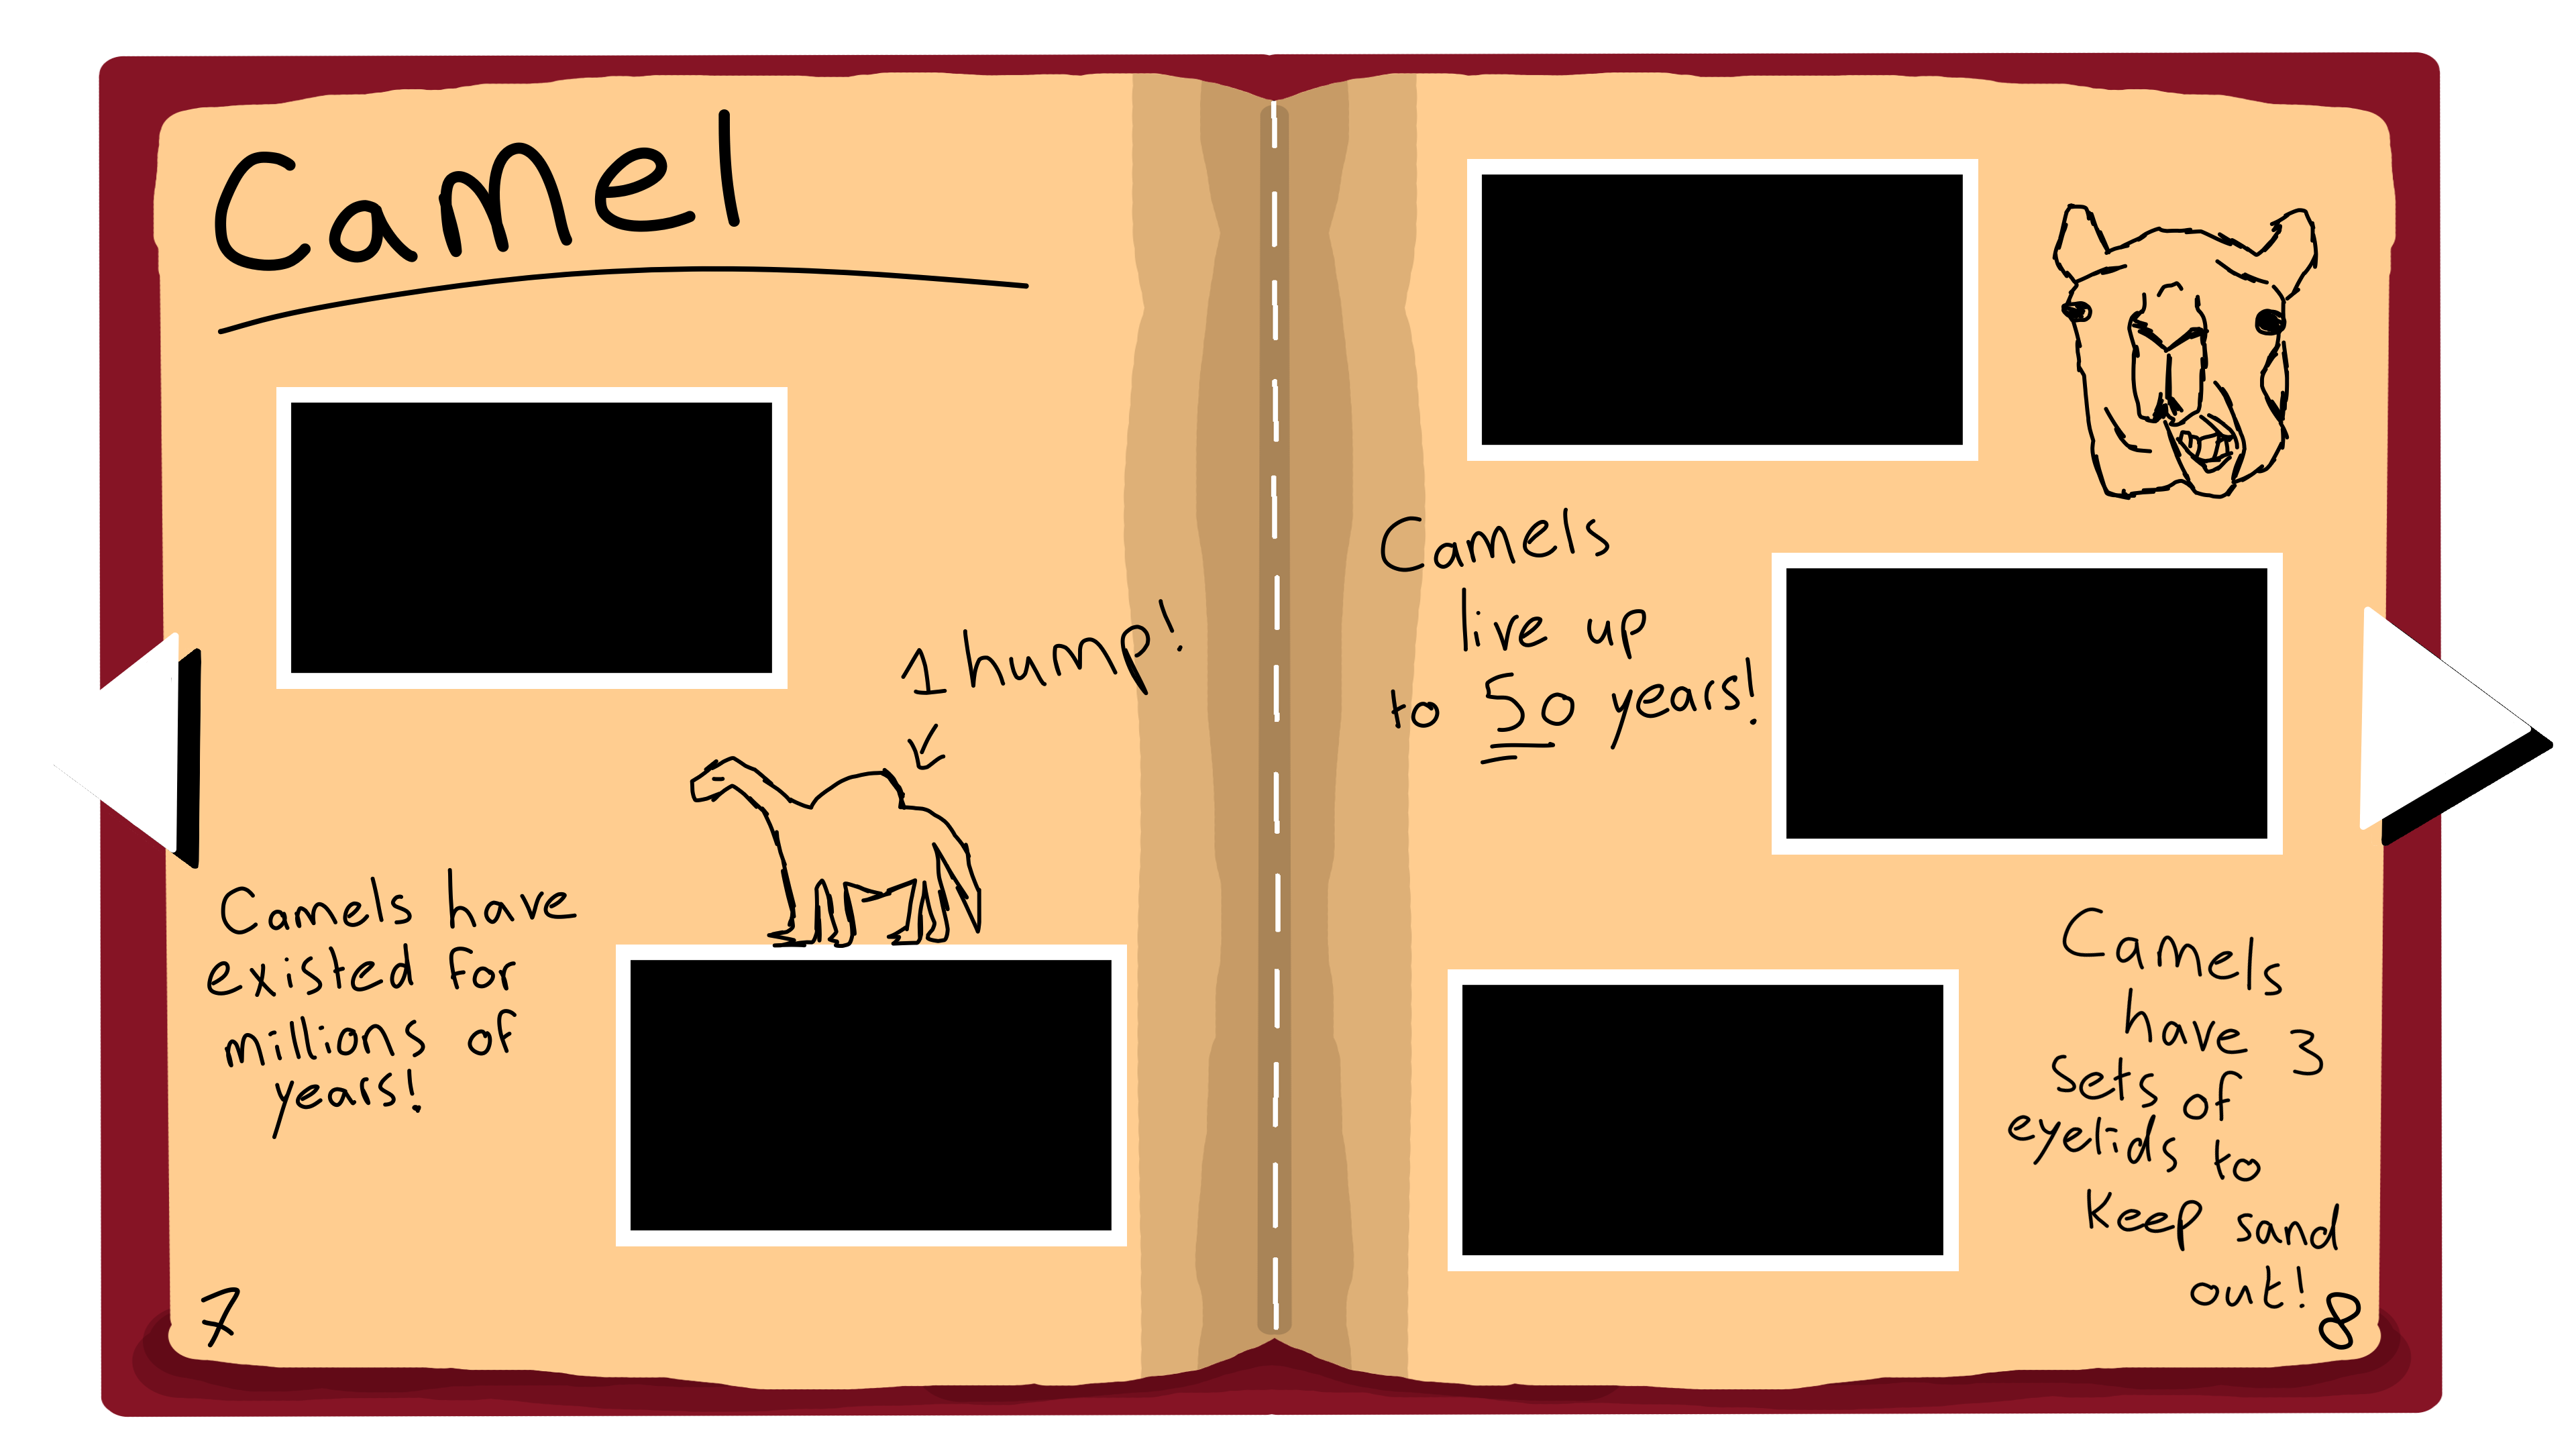 Camel
1 hump!
Camels have
existed for
millions of
years!
7
Camels
live up
to 50 years!
Camels
have 3
sets of
eyelids to
keep sand
out!
8